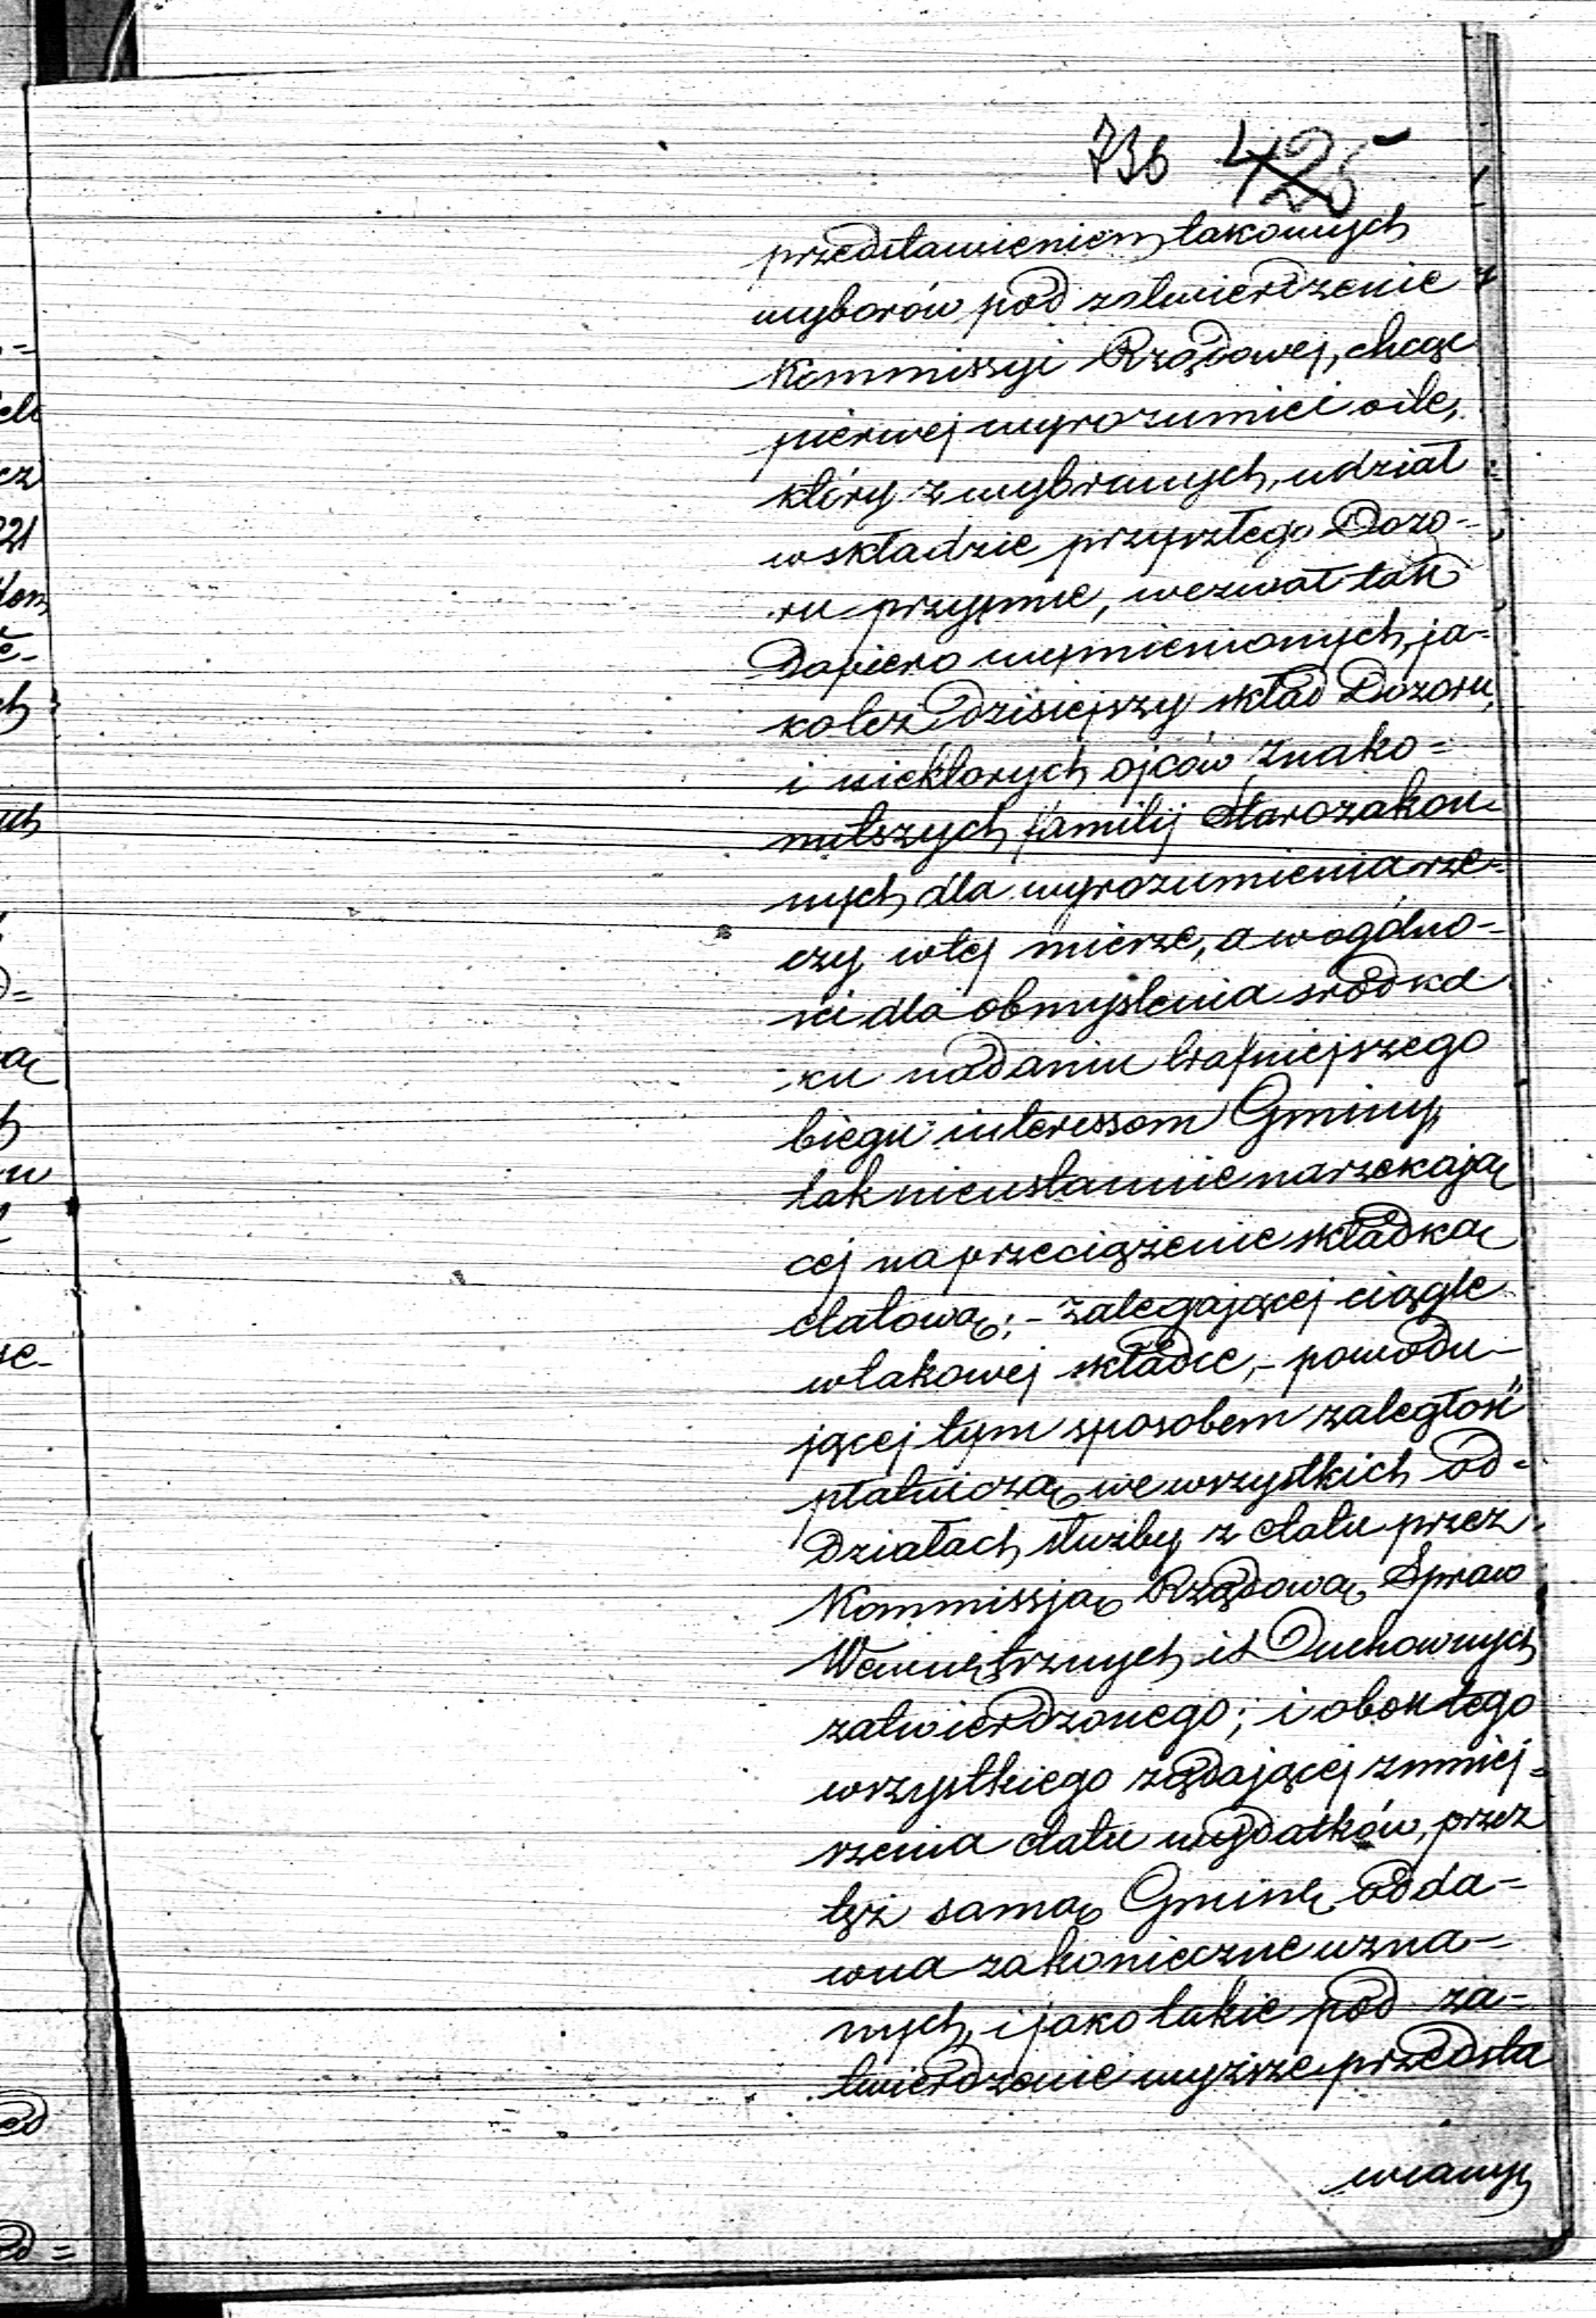 736 425
przedstawieniem takowych
wyborów pod zatwierdzenie
Kommissyi Rządowej, chcąc
pierwej wyrozumieć o ile,
który z wybranych, udział
w składzie przyszłego Dozo=
ru przyjmie, wezwał tak
Dopiero wymienionych, ja=
ko leż dzisiejszy skład Dozoru,
i niektorych ojców znako=
mitszych familij Starozakon=
nych dla wyrozumienia rze=
czy w tej mierze, a w ogólno=
ści dla obmyslenia srodka
ku nadaniu trafniejszego
biegu interessom Gminy,
tak nieustannie narzekają
cej na przeciążenie składką
etatową; - zalegającej ciągle
w takowej składce, - powodu-
jącej tym sposobem zaległość
płatniczą we wszystkich od=
działach służby z etatu przez
Kommissją Rządową Spraw
Wewnętrznych i Duchownych
zatwierdzonego; i obok tego
wszystkiego rządającej zmniej=
szenia etatu wydatków, przez
tęż samą Gminę odda=
wna za konieczne uzna=
nych, i jako takie pod za=
twierdzenie wyższe przedsta
wianych
cz
221
ch
ną
se-